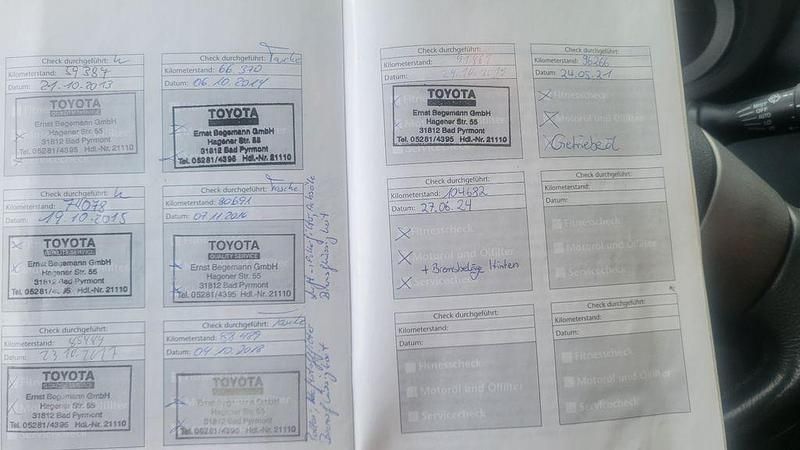 Check durchgeführt:
Kilometerstand: 59 384
Datum: 21.10.2013
TOYOTA
QUALITY SERVICE
Ernst Begemann GmbH
Hagener Str. 55
31812 Bad Pyrmont
Tel. 05281/4395 Hdl.-Nr. 21110
Check durchgeführt:
Kilometerstand: 66 370
Datum: 06.10.2014
TOYOTA
Ernst Begemann GmbH
Hagener Str. 55
31812 Bad Pyrmont
Tel. 05281/4395 Hdl.-Nr. 21110
Check durchgeführt:
Kilometerstand: 74078
Datum: 19.10.2015
TOYOTA
QUALITY SERVICE
Ernst Begemann GmbH
Hagener Str. 55
31812 Bad Pyrmont
Tel. 05281/4395 Hdl.-Nr. 21110
Check durchgeführt:
Kilometerstand: 80691
Datum: 07.11.2016
TOYOTA
QUALITY SERVICE
Ernst Begemann GmbH
Hagener Str. 55
31812 Bad Pyrmont
Tel. 05281/4395 Hdl.-Nr. 21110
Check durchgeführt:
Kilometerstand:
Datum: 23.10.2017
TOYOTA
Ernst Begemann GmbH
Hagener Str. 55
31812 Bad Pyrmont
Tel. 05281/4395 Hdl.-Nr. 21110
Check durchgeführt:
Kilometerstand:
Datum: 09.10.2018
TOYOTA
Ernst Begemann GmbH
Hagener Str. 55
31812 Bad Pyrmont
Tel. 05281/4395 Hdl.-Nr. 21110
Check durchgeführt:
Kilometerstand:
Datum:
TOYOTA
Ernst Begemann GmbH
Hagener Str. 55
31812 Bad Pyrmont
Tel. 05281/4395 Hdl.-Nr. 21110
Check durchgeführt:
Kilometerstand: 96266
Datum: 24.05.21
Fitnesscheck
Motoröl und Ölfilter
Getriebeöl
Check durchgeführt:
Kilometerstand: 104682
Datum: 27.06.24
Fitnesscheck
Motoröl und Ölfilter
+ Bremsbeläge Hinten
Servicecheck
Check durchgeführt:
Kilometerstand:
Datum:
Fitnesscheck
Motoröl und Ölfilter
Servicecheck
Check durchgeführt:
Kilometerstand:
Datum:
Fitnesscheck
Motoröl und Ölfilter
Servicecheck
Check durchgeführt:
Kilometerstand:
Datum:
Fitnesscheck
Motoröl und Ölfilter
Servicecheck
OFF
AUTO
LO